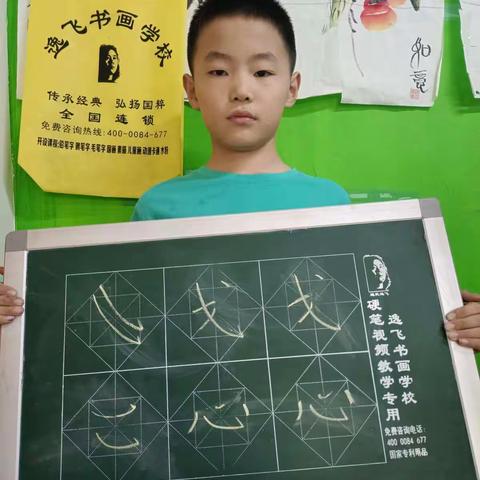 逸飞书画学校
传承经典 弘扬国粹
全国连锁
免费咨询热线:400-0084-677
开设课程:铅笔字 钢笔字 毛笔字 国画 素描 儿童画 动漫卡通 水粉
如意
戈 戈
心 心
逸飞书画学校
硬笔视频教学专用
免费咨询电话:
400 0084 677
国家专利用品